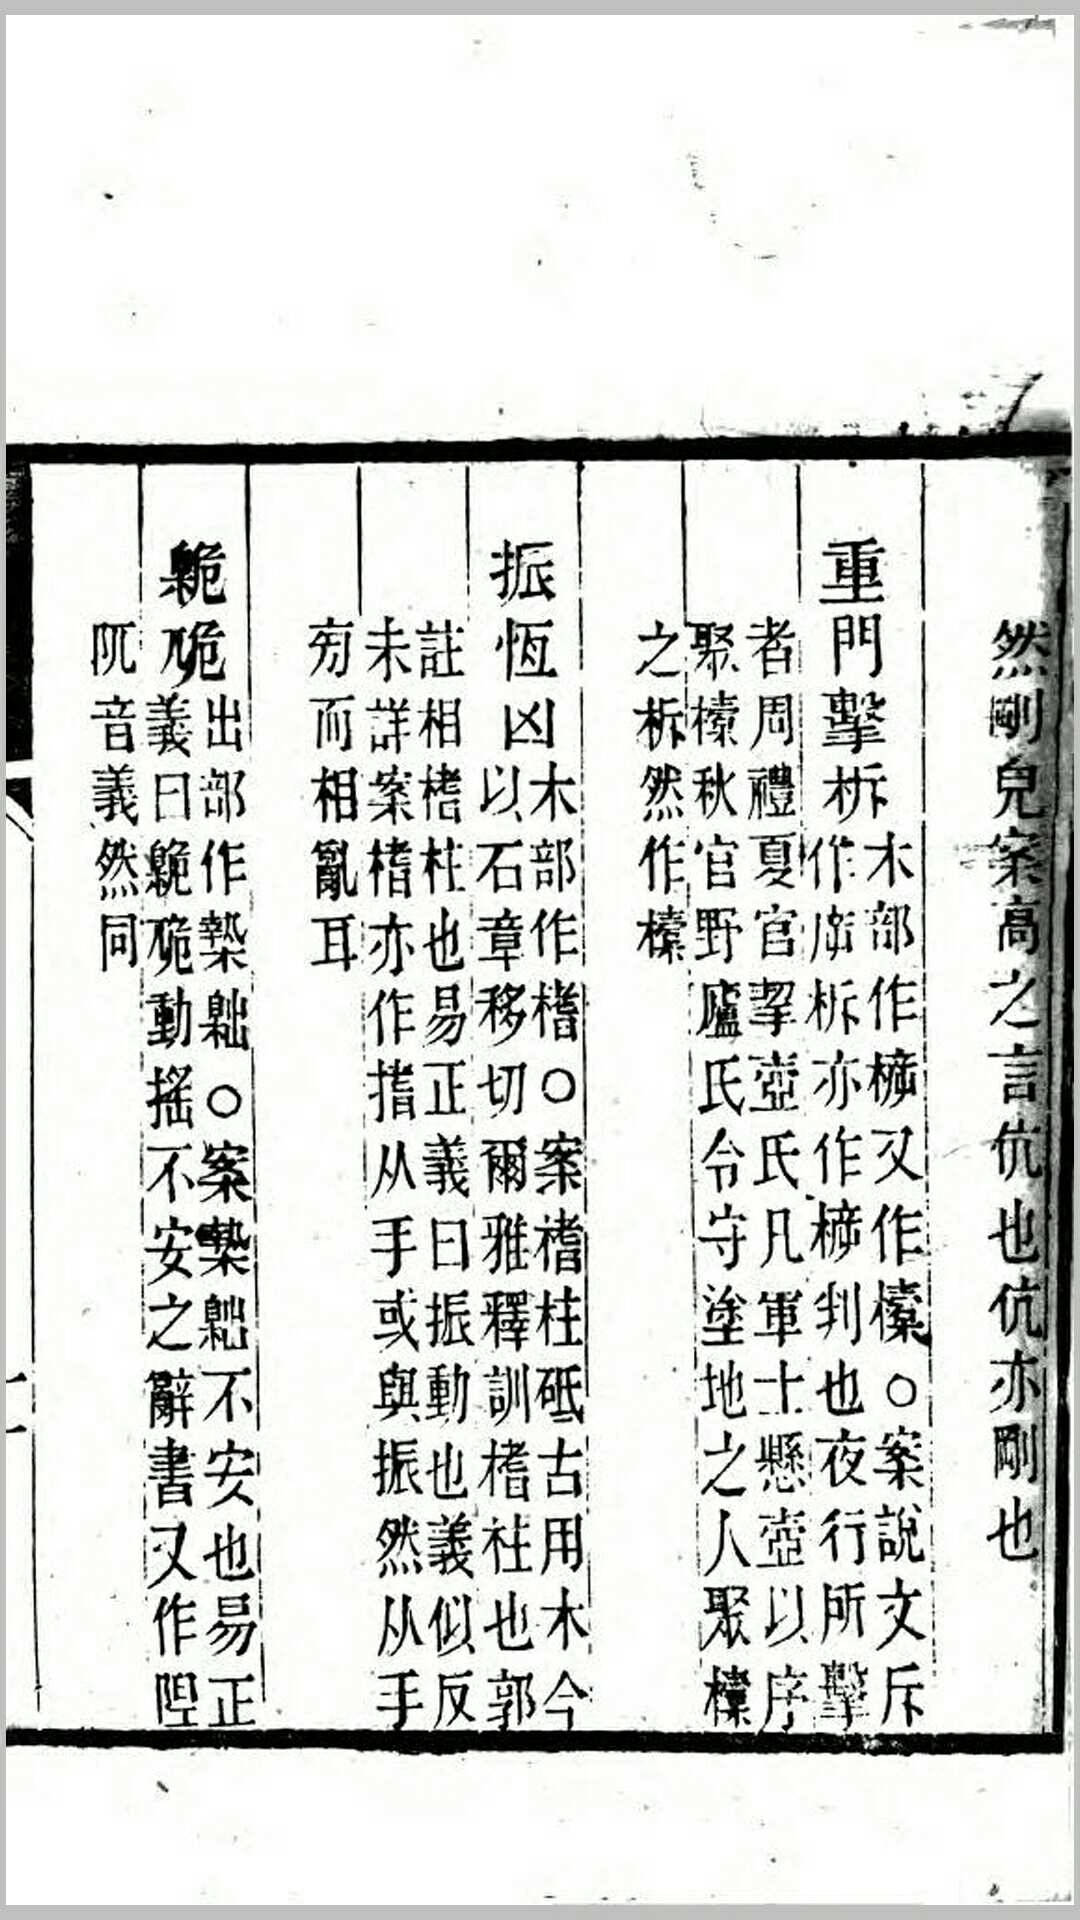 然剛皃案高之言伉也伉亦剛也
重門擊柝
木部作㯓又作欜○案說文斥
作㡿柝亦作㯓判也夜行所擊
者周禮夏官挈壺氏凡軍士懸壺以序
聚欜秋官野廬氏令守塗地之人聚欜
之柝然作欜
振恆凶
木部作榰○案榰柱砥古用木今
以石章移切爾雅釋訓榰柱也郭
註相榰柱也易正義曰振動也義似反
未詳案榰亦作搘从手或與振然从手
㫄而相亂耳
臲卼
出部作槷䵳○案槷䵳不安也易正
義曰臲卼動搖不安之辭書又作隉
阢音義然同